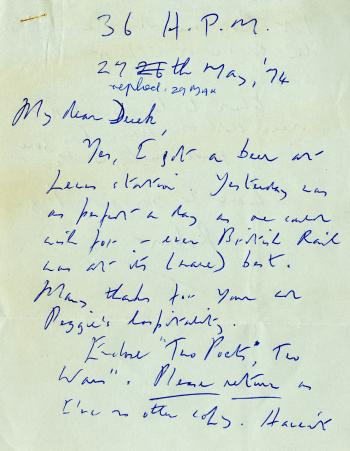 36 H.P.M.
27 26th May, '74
replied. 29 May
My dear Derek
Yes, I got a beer at
Lewes station. Yesterday was
as perfect a day as one could
wish for – even British Rail
was at its (rare) best.
Many thanks for your and
Peggie's hospitality.
Enclose "Two Poets, Two
Wars". Please return as
I've no other copy. Haven't